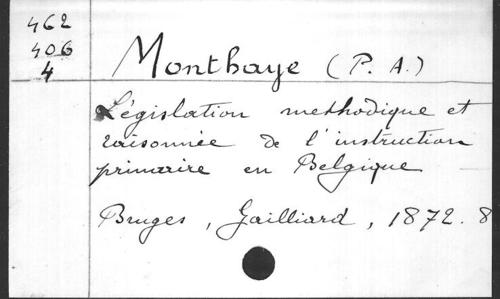 462
406
4
Monthaye (P. A.)
Législation methodique et
raisonnée de l'instruction
primaire en Belgique
Bruges, Gailliard, 1872. 8